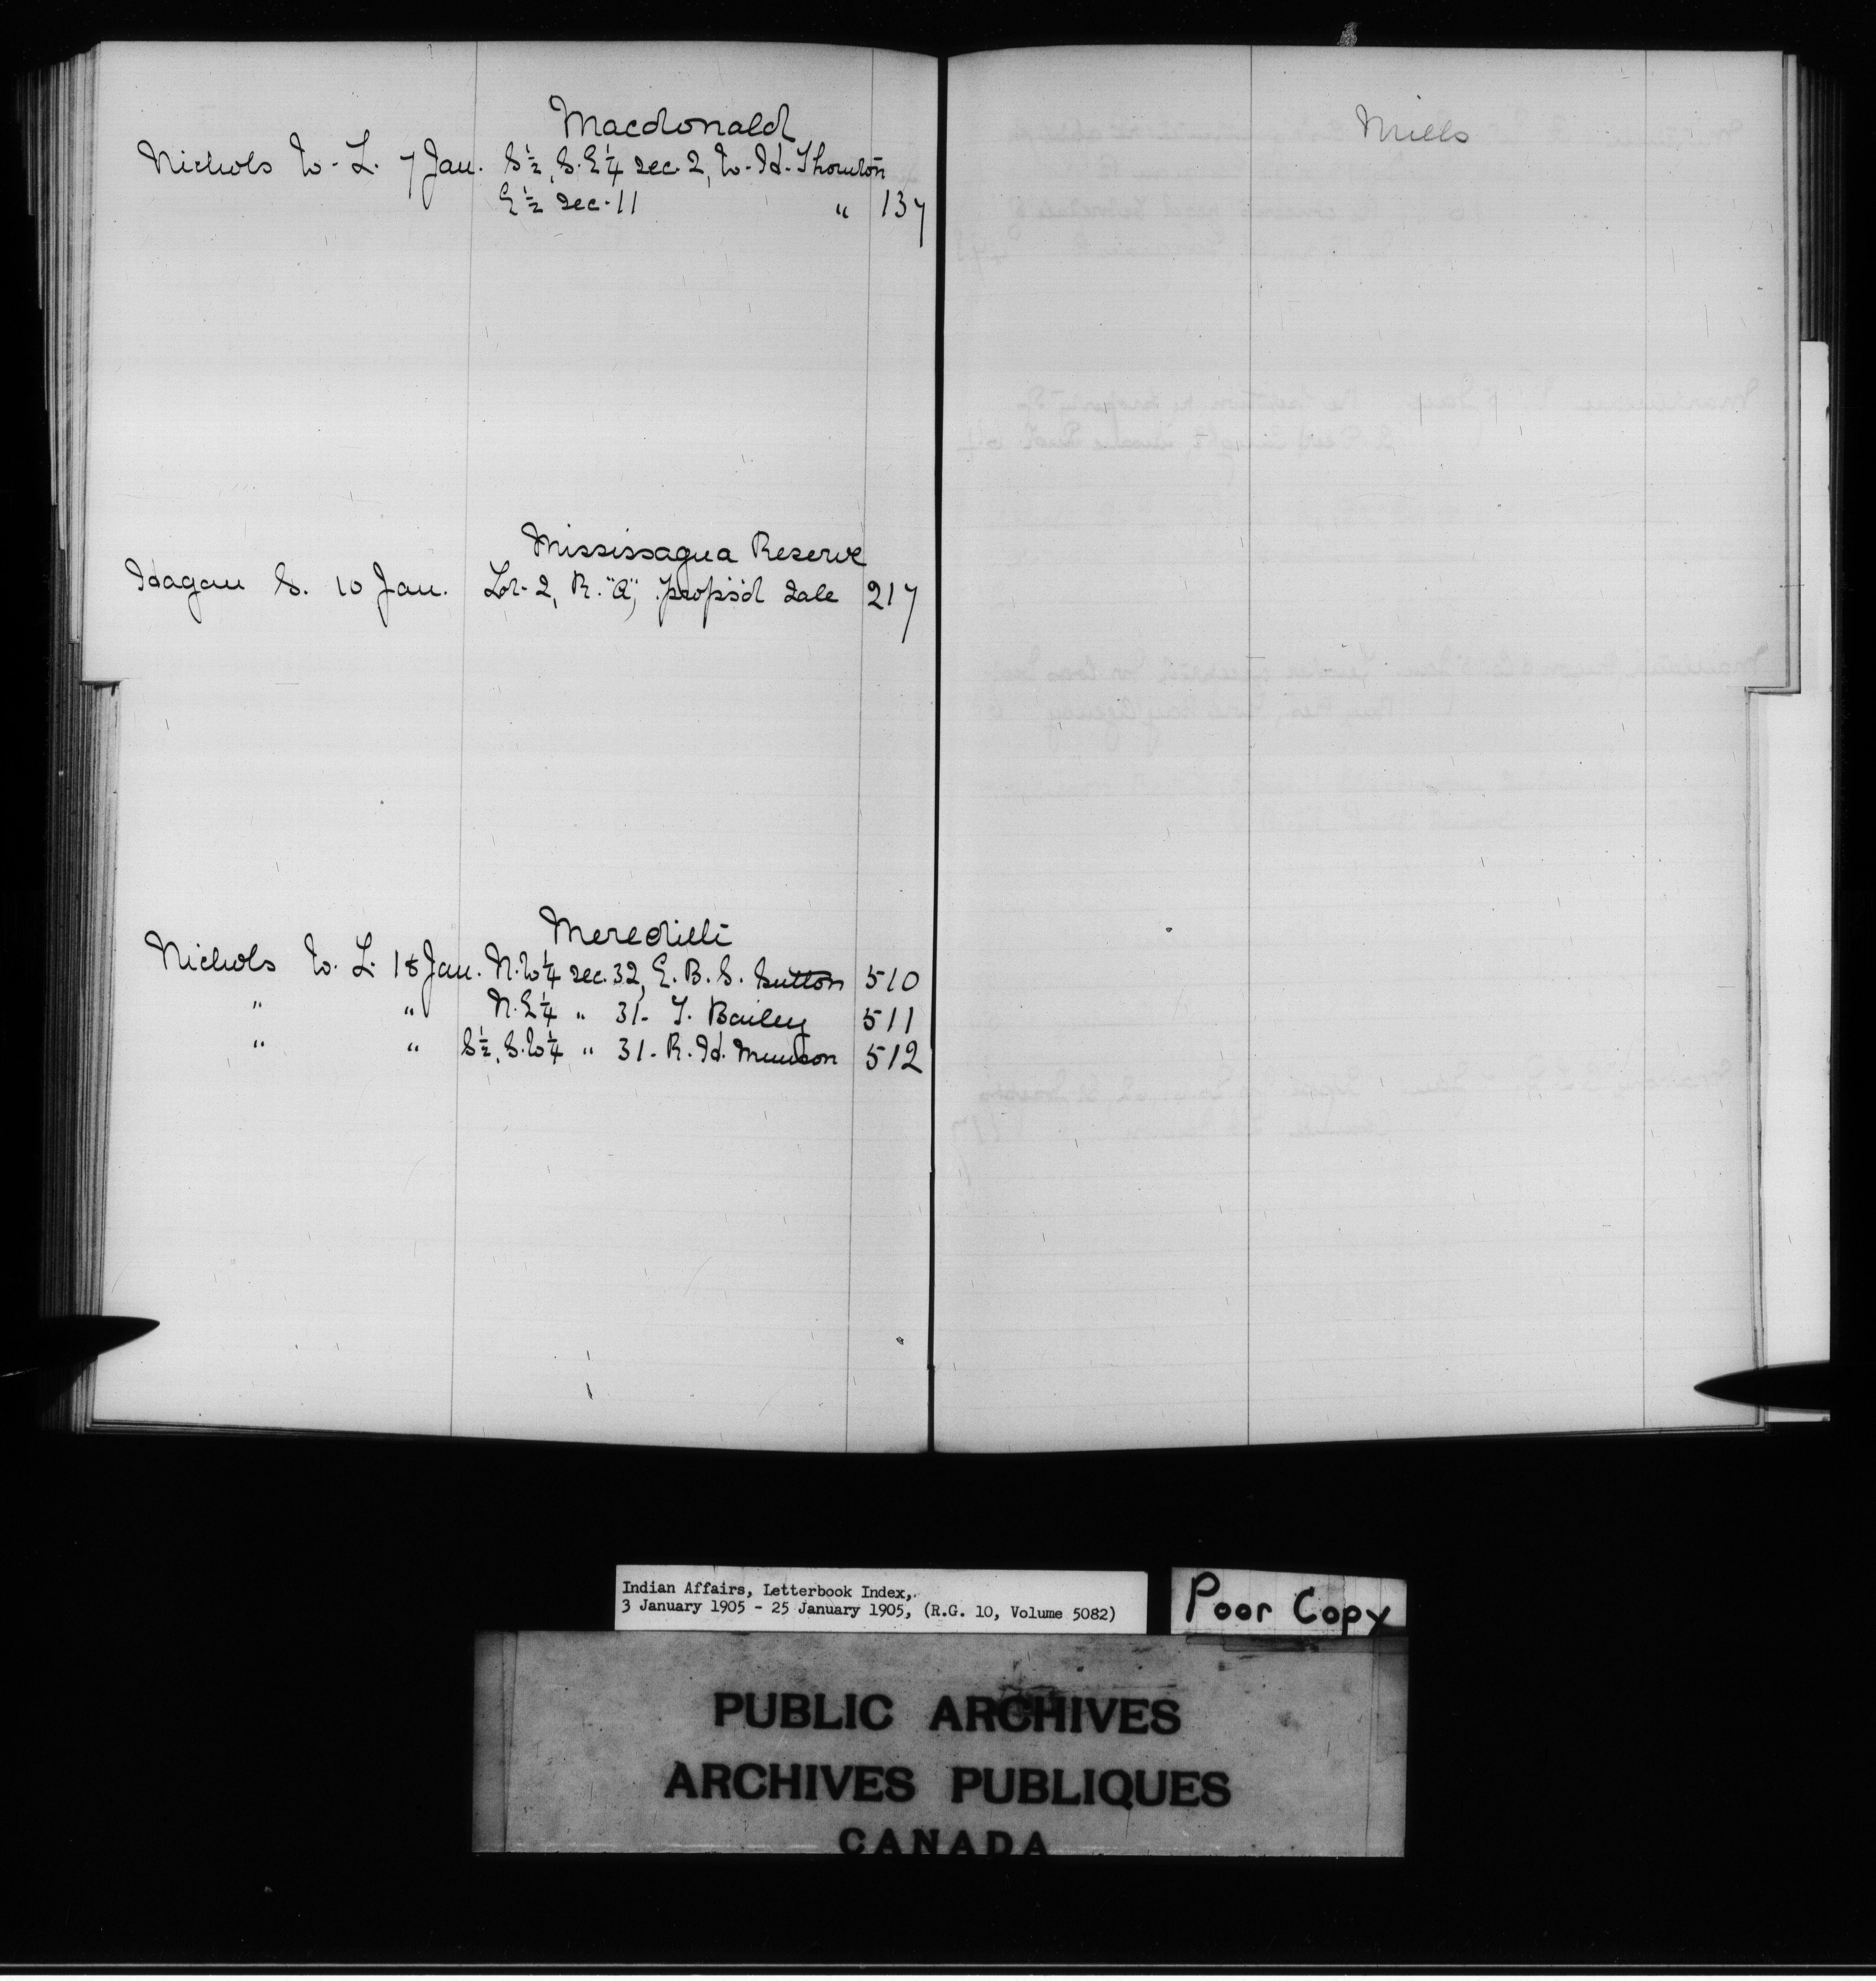 Macdonald
Nichols W. L. 7 Jan. S½, S.E¼ sec. 2, W. H. Thornton
E½ sec. 11 " 137
Mississagua Reserve
Hagan S. 10 Jan. Lot 2, R. "A", propos'd sale 217
Meredith
Nichols W. L. 18 Jan. N.W¼ sec. 32, E. B. S. Sutton 510
" " N.E¼ " 31. T. Bailey 511
" " S½, S.W¼ " 31. R. H. Munson 512
Mills
Indian Affairs, Letterbook Index,
3 January 1905 - 25 January 1905, (R.G. 10, Volume 5082)
Poor Copy
PUBLIC ARCHIVES
ARCHIVES PUBLIQUES
CANADA